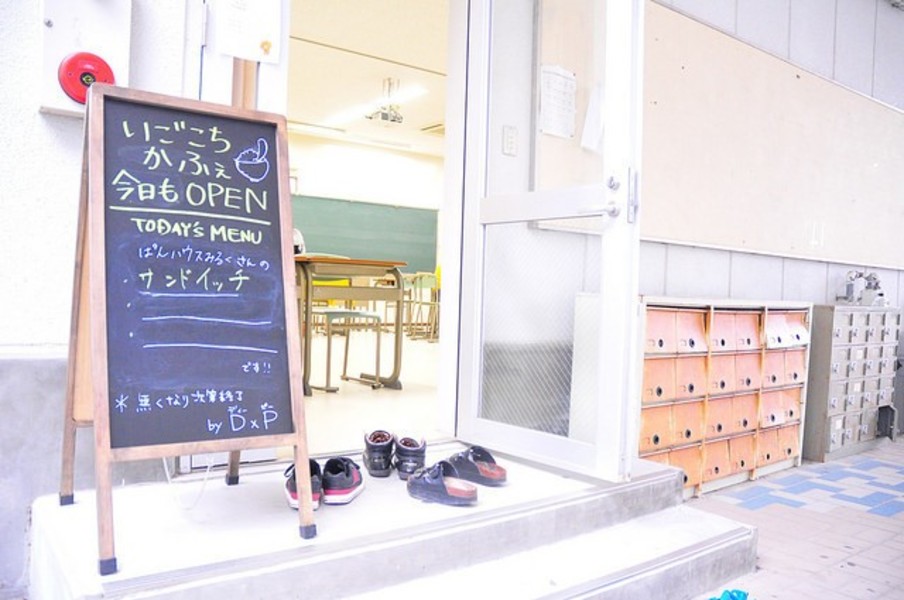 いごこち
かふぇ
今日も OPEN
TODAY'S MENU
ぱんハウスみるくさんの
・サンドイッチ
・
・
です!!
＊無くなり次第終了
ディー ピー
by D×P